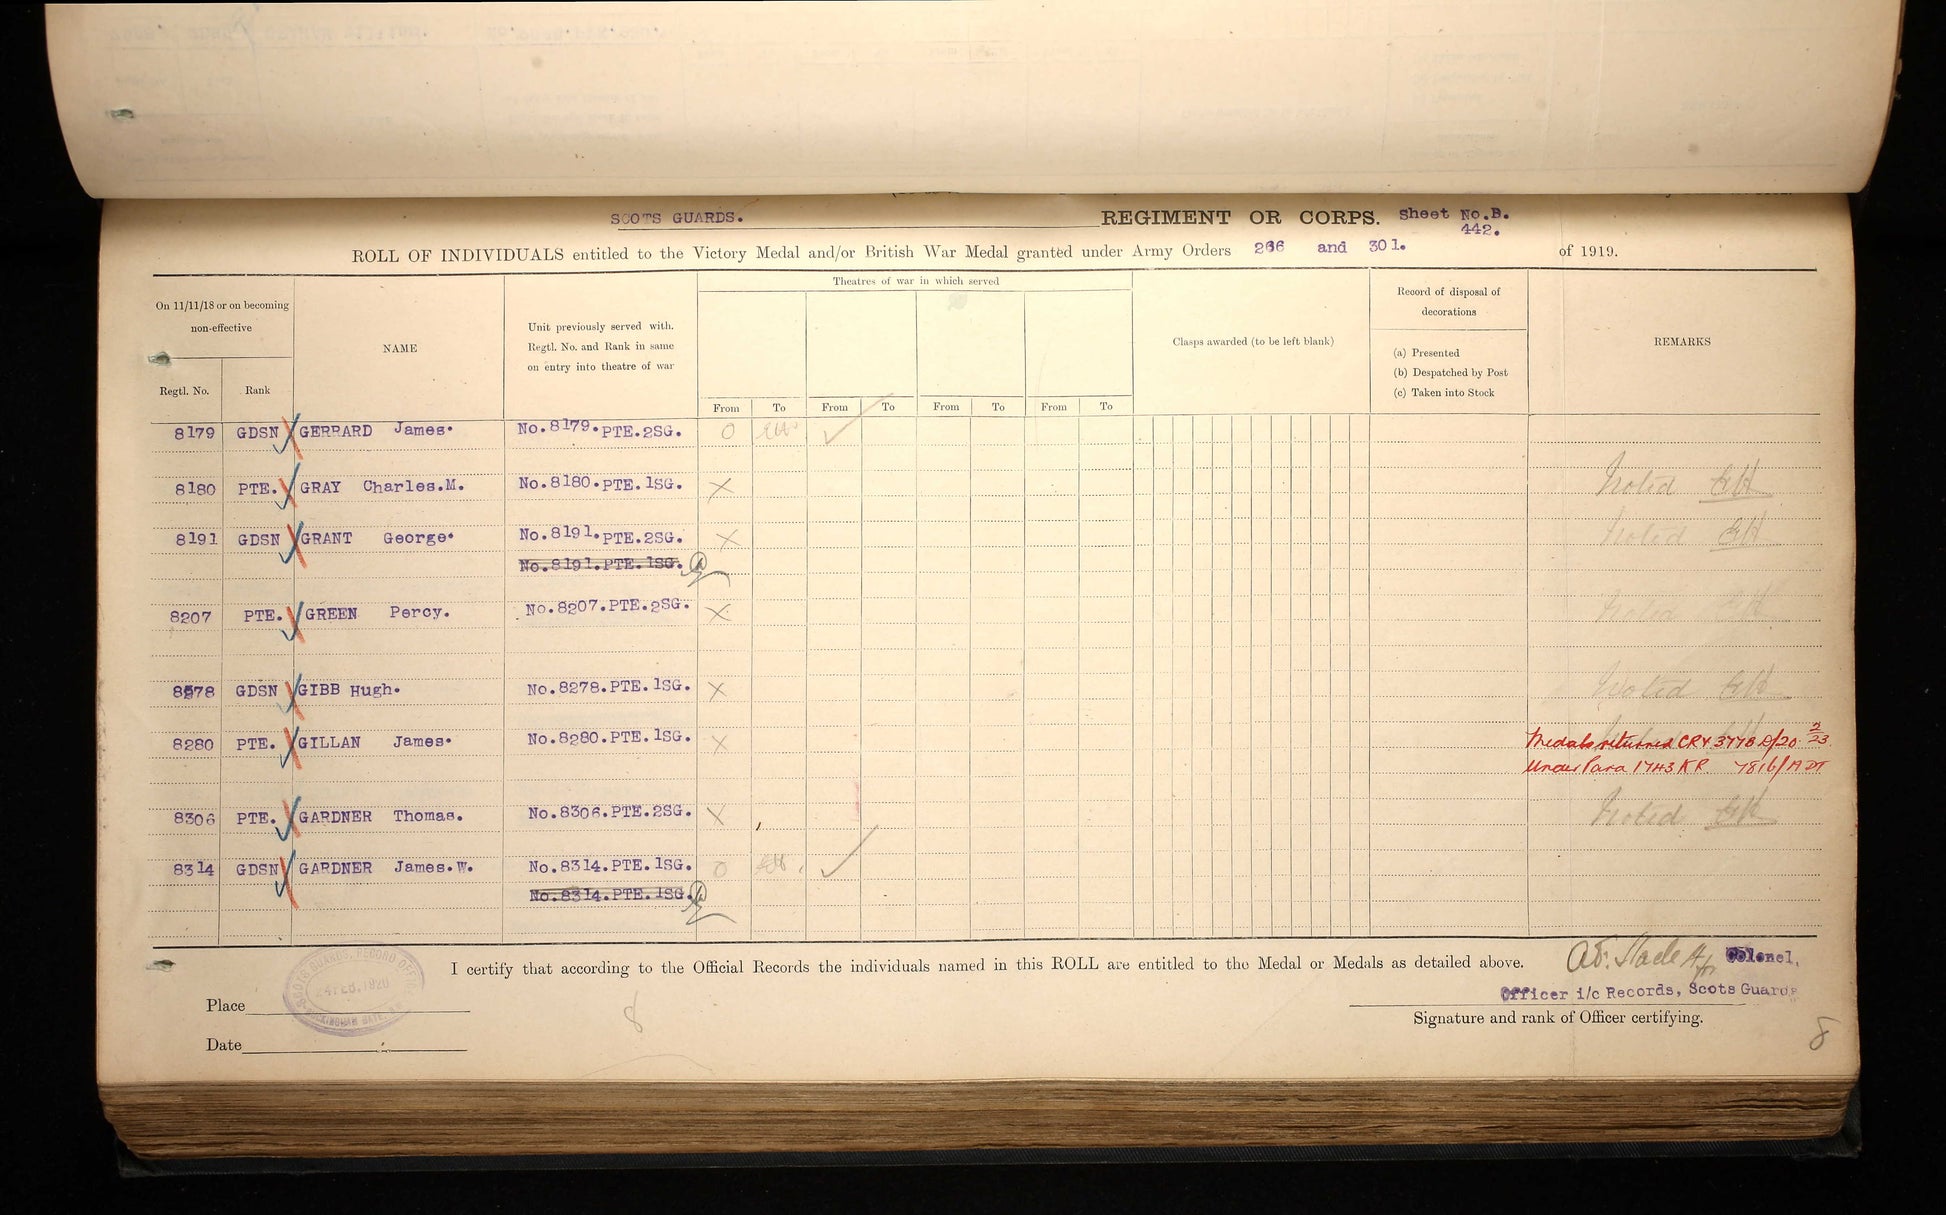 SCOTS GUARDS. REGIMENT OR CORPS. Sheet No.B.
442.
ROLL OF INDIVIDUALS entitled to the Victory Medal and/or British War Medal granted under Army Orders 266 and 301. of 1919.
On 11/11/18 or on becoming
non-effective
Regtl. No. Rank
NAME
Unit previously served with.
Regtl. No. and Rank in same
on entry into theatre of war
Theatres of war in which served
From To From To From To From To
Clasps awarded (to be left blank)
Record of disposal of
decorations
(a) Presented
(b) Despatched by Post
(c) Taken into Stock
REMARKS
8179 GDSN GERRARD James. No.8179.PTE.2SG.
8180 PTE. GRAY Charles.M. No.8180.PTE.1SG. Noted
8191 GDSN GRANT George. No.8191.PTE.2SG. Noted
No.8191.PTE.1SG.
8207 PTE. GREEN Percy. No.8207.PTE.2SG. Noted
8278 GDSN GIBB Hugh. No.8278.PTE.1SG. Noted
8280 PTE. GILLAN James. No.8280.PTE.1SG. Medals returned
Under Para 1743 KR
8306 PTE. GARDNER Thomas. No.8306.PTE.2SG. Noted
8314 GDSN GARDNER James.W. No.8314.PTE.1SG.
No.8314.PTE.1SG.
I certify that according to the Official Records the individuals named in this ROLL are entitled to the Medal or Medals as detailed above.
Colonel,
Officer i/c Records, Scots Guards
Signature and rank of Officer certifying.
SCOTS GUARDS, RECORD OFFICE
24 FEB. 1920
BUCKINGHAM GATE
Place
Date
8
8